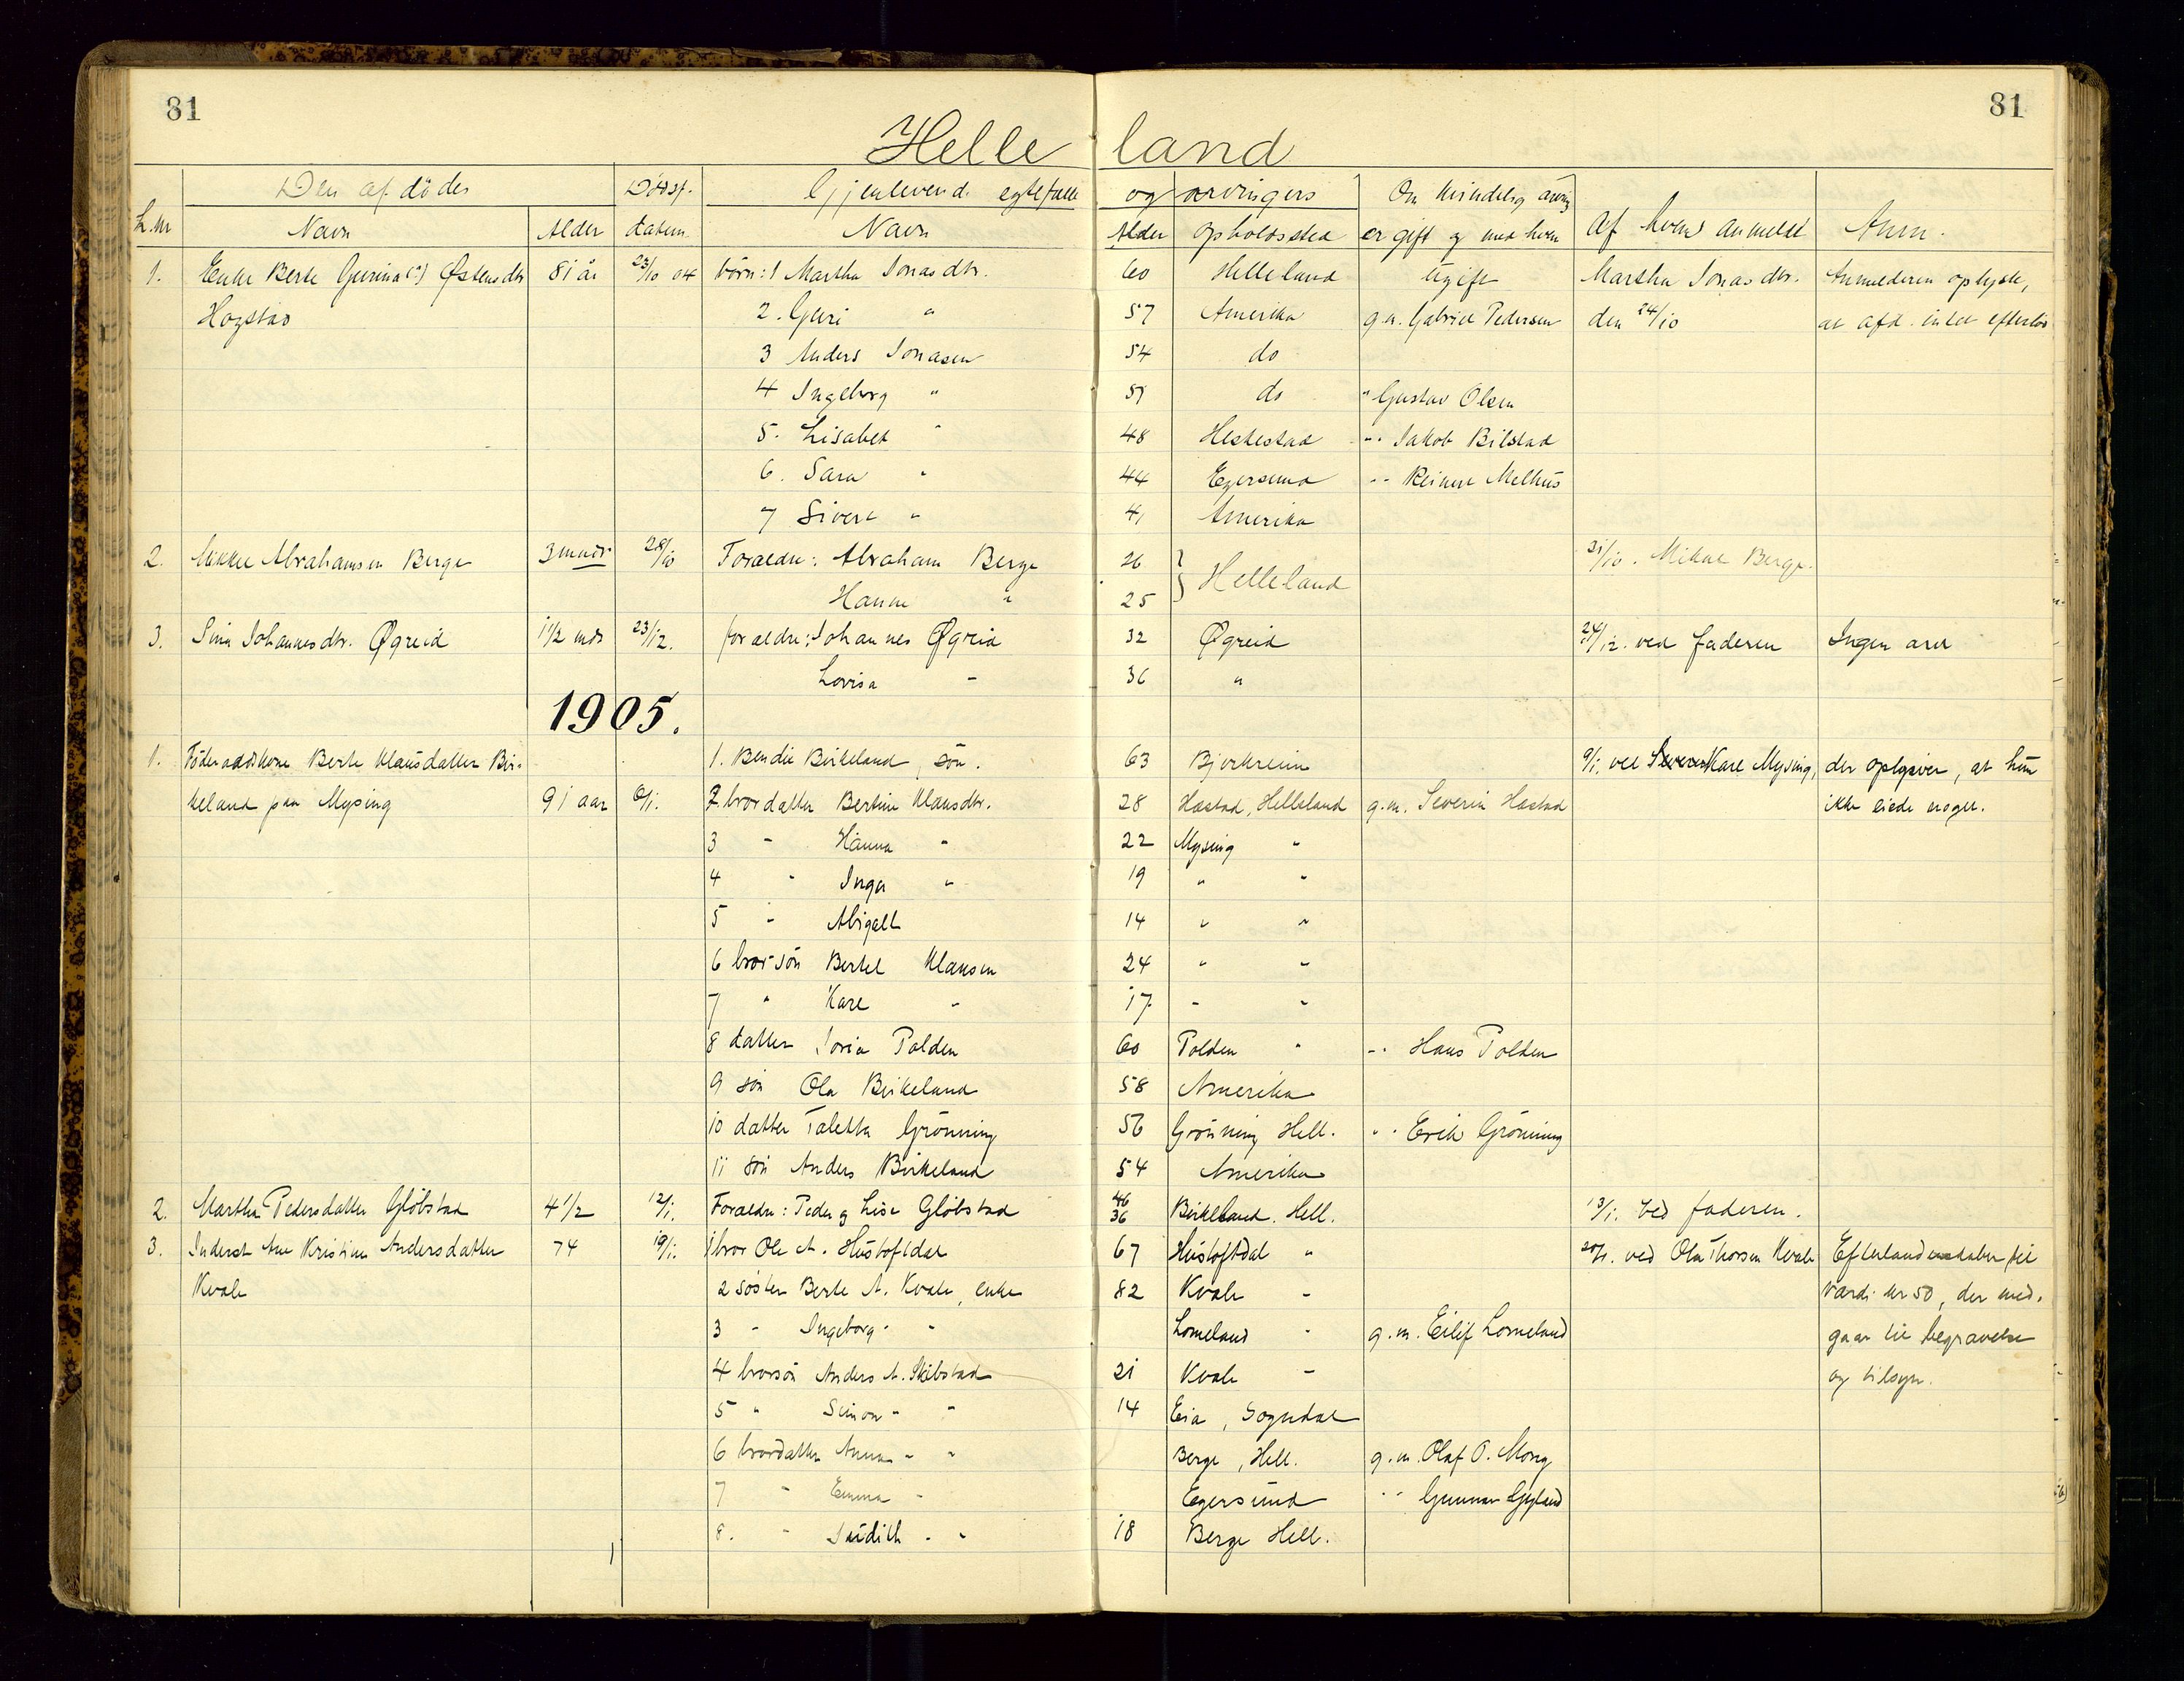 81 81
Helleland
Den afdødes Dødsf. Gjenlevende egtefælle og arvingers Om kvindelig arving
L.nr Navn Alder datum Navn Alder opholdssted er gift og med hvem Af hvem anmeldt Anm.
1. Enke Berte Gurina (?) Østensdtr 81 år 23/10 04 børn: 1 Martha Jonasdtr. 60 Helleland Ugift Martha Jonasdtr. Anmelderen oplyste,
Hogstad 2. Guri " 57 Amerika g.m. Gabriel Pedersen den 24/10 at afd. intet efterlod
3 Anders Jonasen 54 do
4 Ingeborg " 51 do " Gustav Olsen
5. Lisabet " 48 Heskestad " Jakob Bilstad
6. Sara " 44 Egersund " Reinert Melhus
7 Sivert " 41 Amerika
2. Mikkel Abrahamsen Berge 3 mndr 28/10 Forældre: Abraham Berge 26 } Helleland 31/10. Mikal Berge.
Hanne " 25
3. Sina Johannesdtr. Øgreid 1 1/2 mdr 23/12. forældre: Johannes Øgreid 32 Øgreid 24/12. ved faderen Ingen arv
Lovisa " 36 "
1905.
1. Føderaadskone Berte Klausdatter Bir- 1. Bendie Birkeland, søn. 63 Bjerkreim 9/1. ved Kare Mysing, der oplyser, at hun
keland paa Mysing 91 aar 6/1. 2. brordatter Bertine Klausdtr. 28 Hæstad, Helleland g.m. Severin Hæstad ikke eiede noget.
3 " Hanna " 22 Mysing "
4 " Inga " 19 " "
5 " Abigael 14 " "
6 brorsøn Bertel Klausen 24 " "
7 " Kare " 17 " "
8 datter Soria Polden 60 Polden " " Hans Polden
9 søn Ola Birkeland 58 Amerika
10 datter Taletta Grønning 56 Grønning Hell. " Erik Grønning
11 søn Anders Birkeland 54 Amerika
2. Martha Pedersdatter Gløbstad 4 1/2 12/1. Forældre: Peder og Lise Gløbstad 46 36 Birkeland. Hell. 13/1. ved faderen.
3. Inderst Ane Kristine Andersdatter 74 19/1. 1 bror Ole A. Hustoftdal 67 Hustoftdal " 20/1. ved Ola Thorsen Kvale Efterlad til
Kvale 2 søster Berte A. Kvale, enke 82 Kvale " værdi kr 50, der med-
3 " Ingeborg " " Lomeland " g.m. Eilif Lomeland gaar til begravelse
4 brorsøn Anders A. Skibstad 21 Kvale " og tilsyn.
5 " Simon " " 14 Eia, Sogndal
6 brordatter Anna " " Berge, Hell. g.m. Olaf O. Mong
7 " Emma " Egersund " Gunnar Gyland
8. " Judith " " 18 Berge Hell.